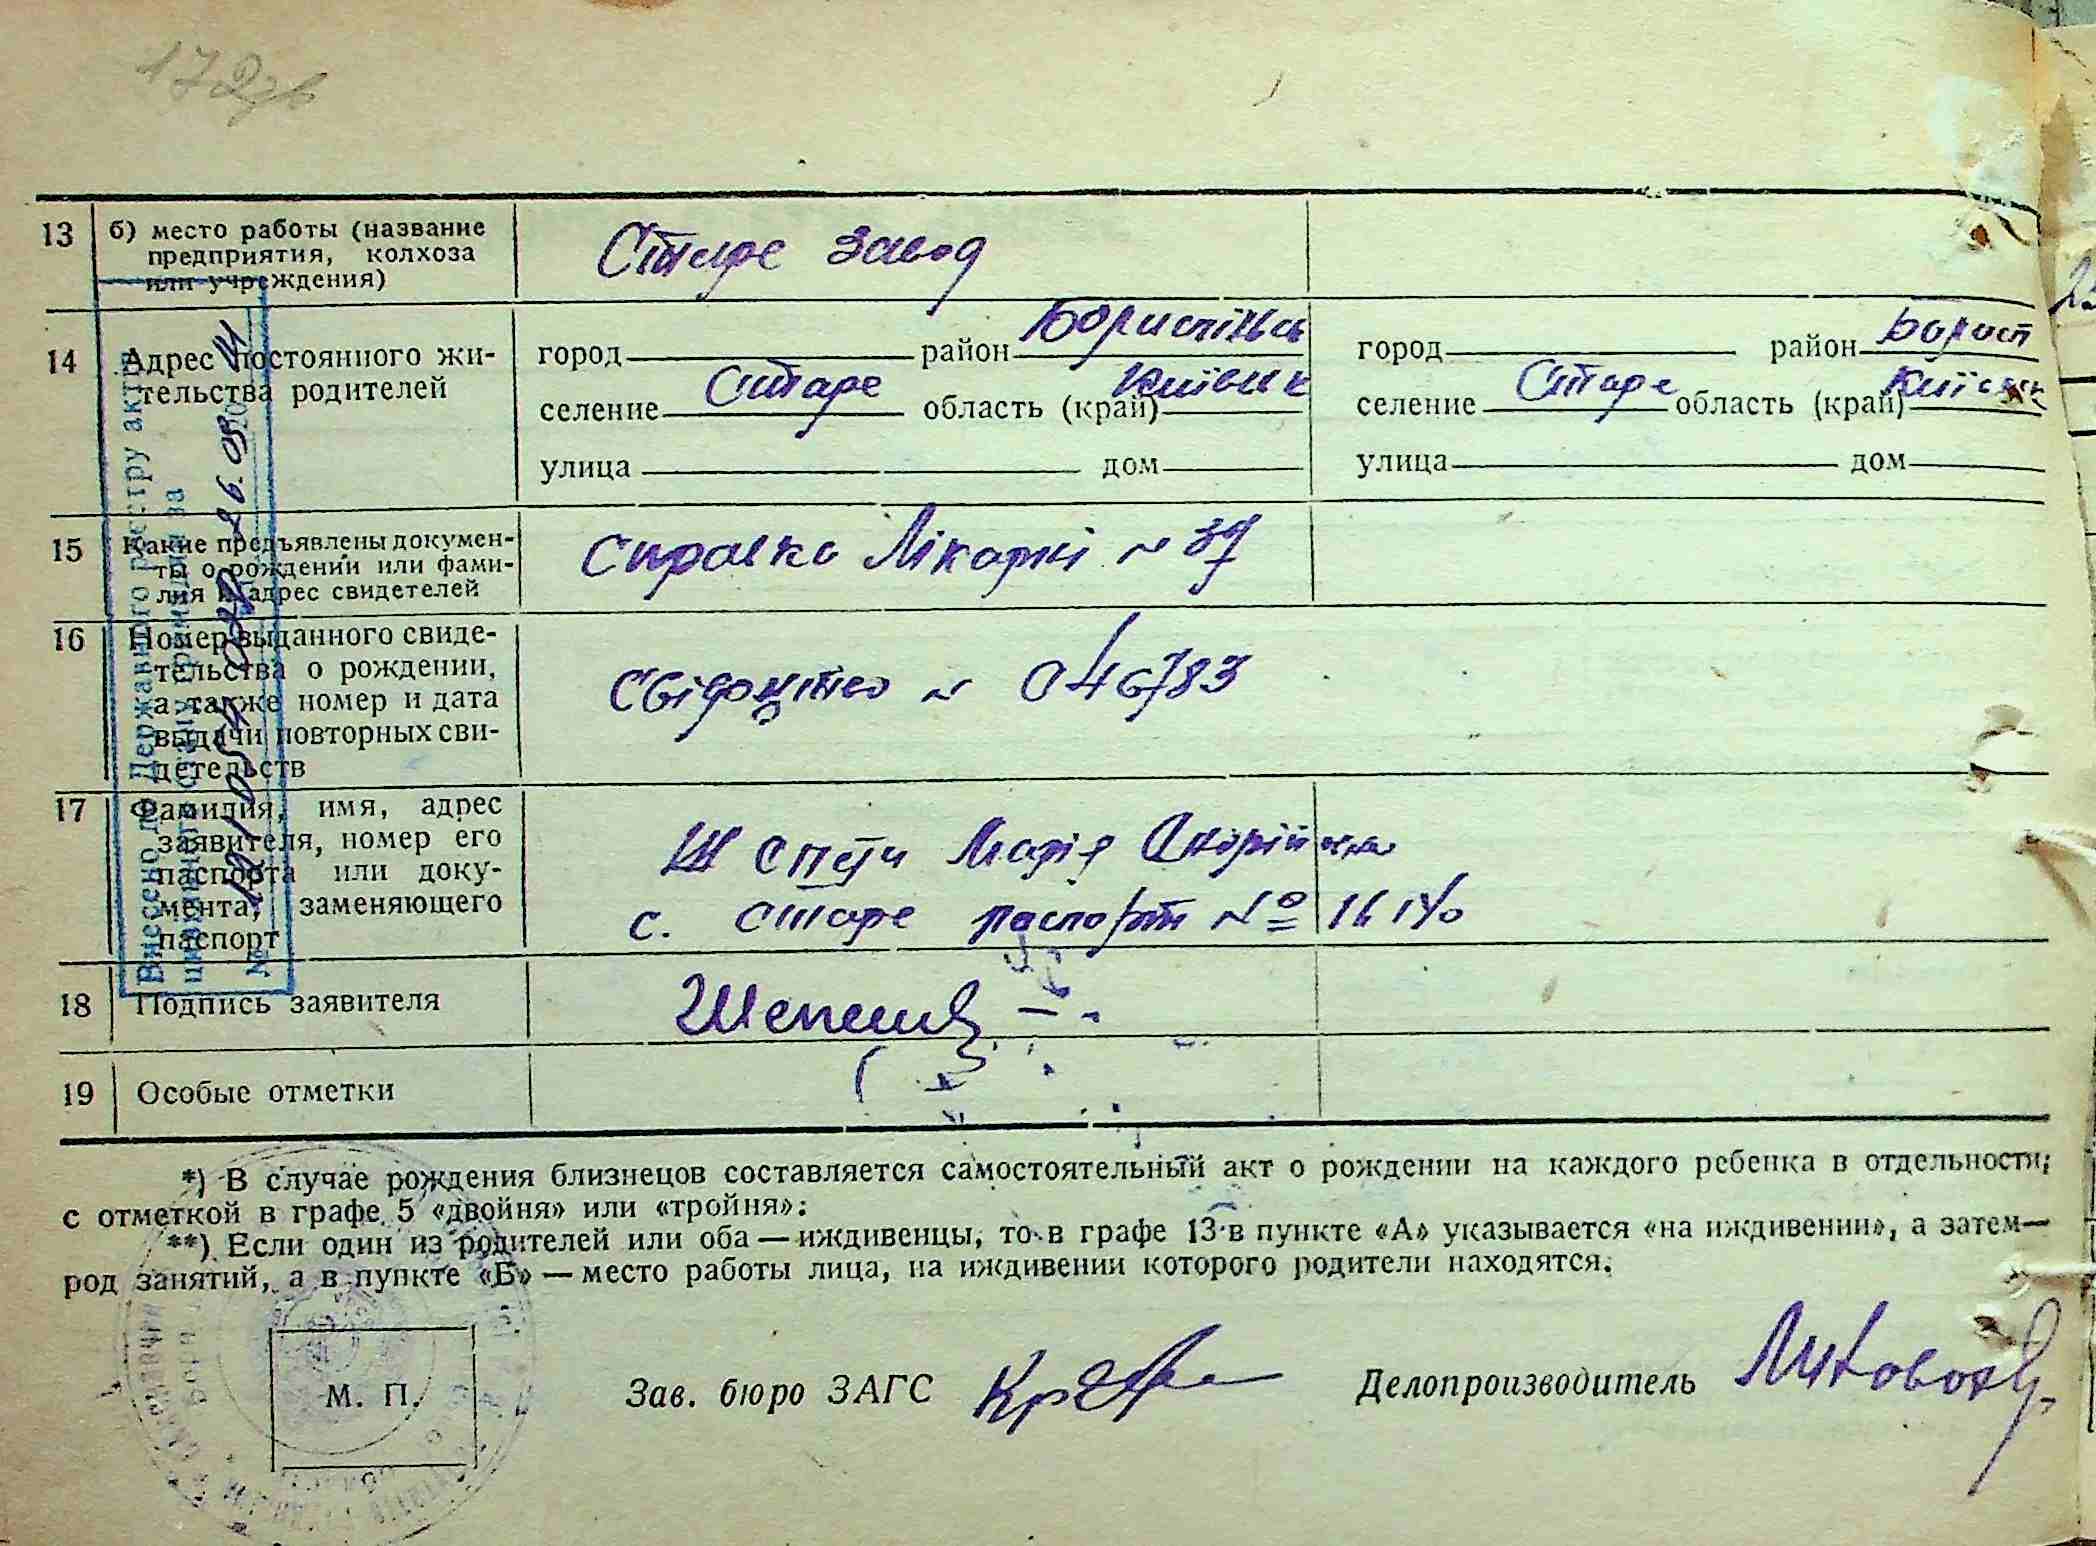 172зв
13 б) место работы (название
предприятия, колхоза
или учреждения)
Старе завод
14 Адрес постоянного жи-
тельства родителей
город район Бориспільськ город район Борисп
селение Старе область (край) Київськ селение Старе область (край) Київськ
улица дом улица дом
15 Какие предъявлены докумен-
ты о рождении или фами-
лия и адрес свидетелей
Справка Лікарні № 39
16 Номер выданного свиде-
тельства о рождении,
а также номер и дата
выдачи повторных сви-
детельств
Свідоцтво № 046783
17 Фамилия, имя, адрес
заявителя, номер его
паспорта или доку-
мента, заменяющего
паспорт
Марія
с. Старе паспорт №
18 Подпись заявителя
19 Особые отметки
*) В случае рождения близнецов составляется самостоятельный акт о рождении на каждого ребенка в отдельности;
с отметкой в графе 5 «двойня» или «тройня»;
**) Если один из родителей или оба — иждивенцы, то в графе 13 в пункте «А» указывается «на иждивении», а затем—
род занятий, а в пункте «Б» — место работы лица, на иждивении которого родители находятся.
М. П. Зав. бюро ЗАГС Делопроизводитель
Внесено до Державного реєстру актів
цивільного стану громадян за
№